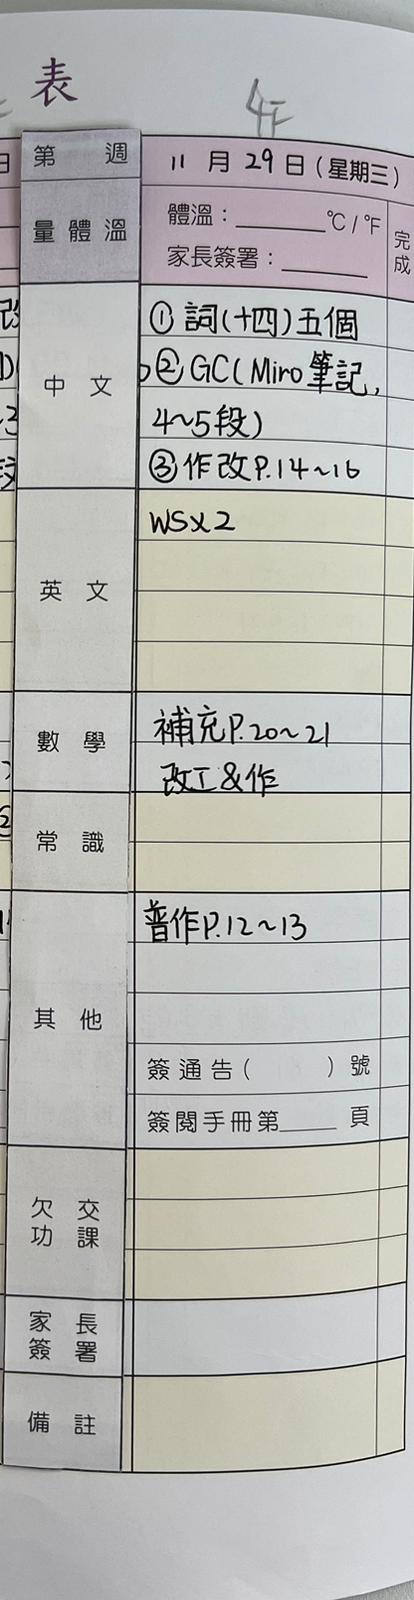 表
4F
第 週
11月29日(星期三)
量體溫
體溫：______°C/°F
家長簽署：______
完成
中文
①詞(十四)五個
②GC(Miro筆記,
4~5段)
③作改P.14~16
英文
WSx2
數學
補充P.20~21
改工&作
常識
其他
普作P.12~13
簽通告( )號
簽閱手冊第____頁
欠交功課
家長簽署
備註